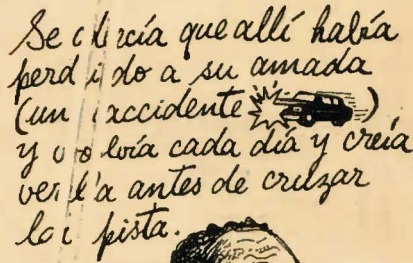 Se decía que allí había
perdido a su amada
(un accidente )
y volvía cada día y creía
verla antes de cruzar
la pista.